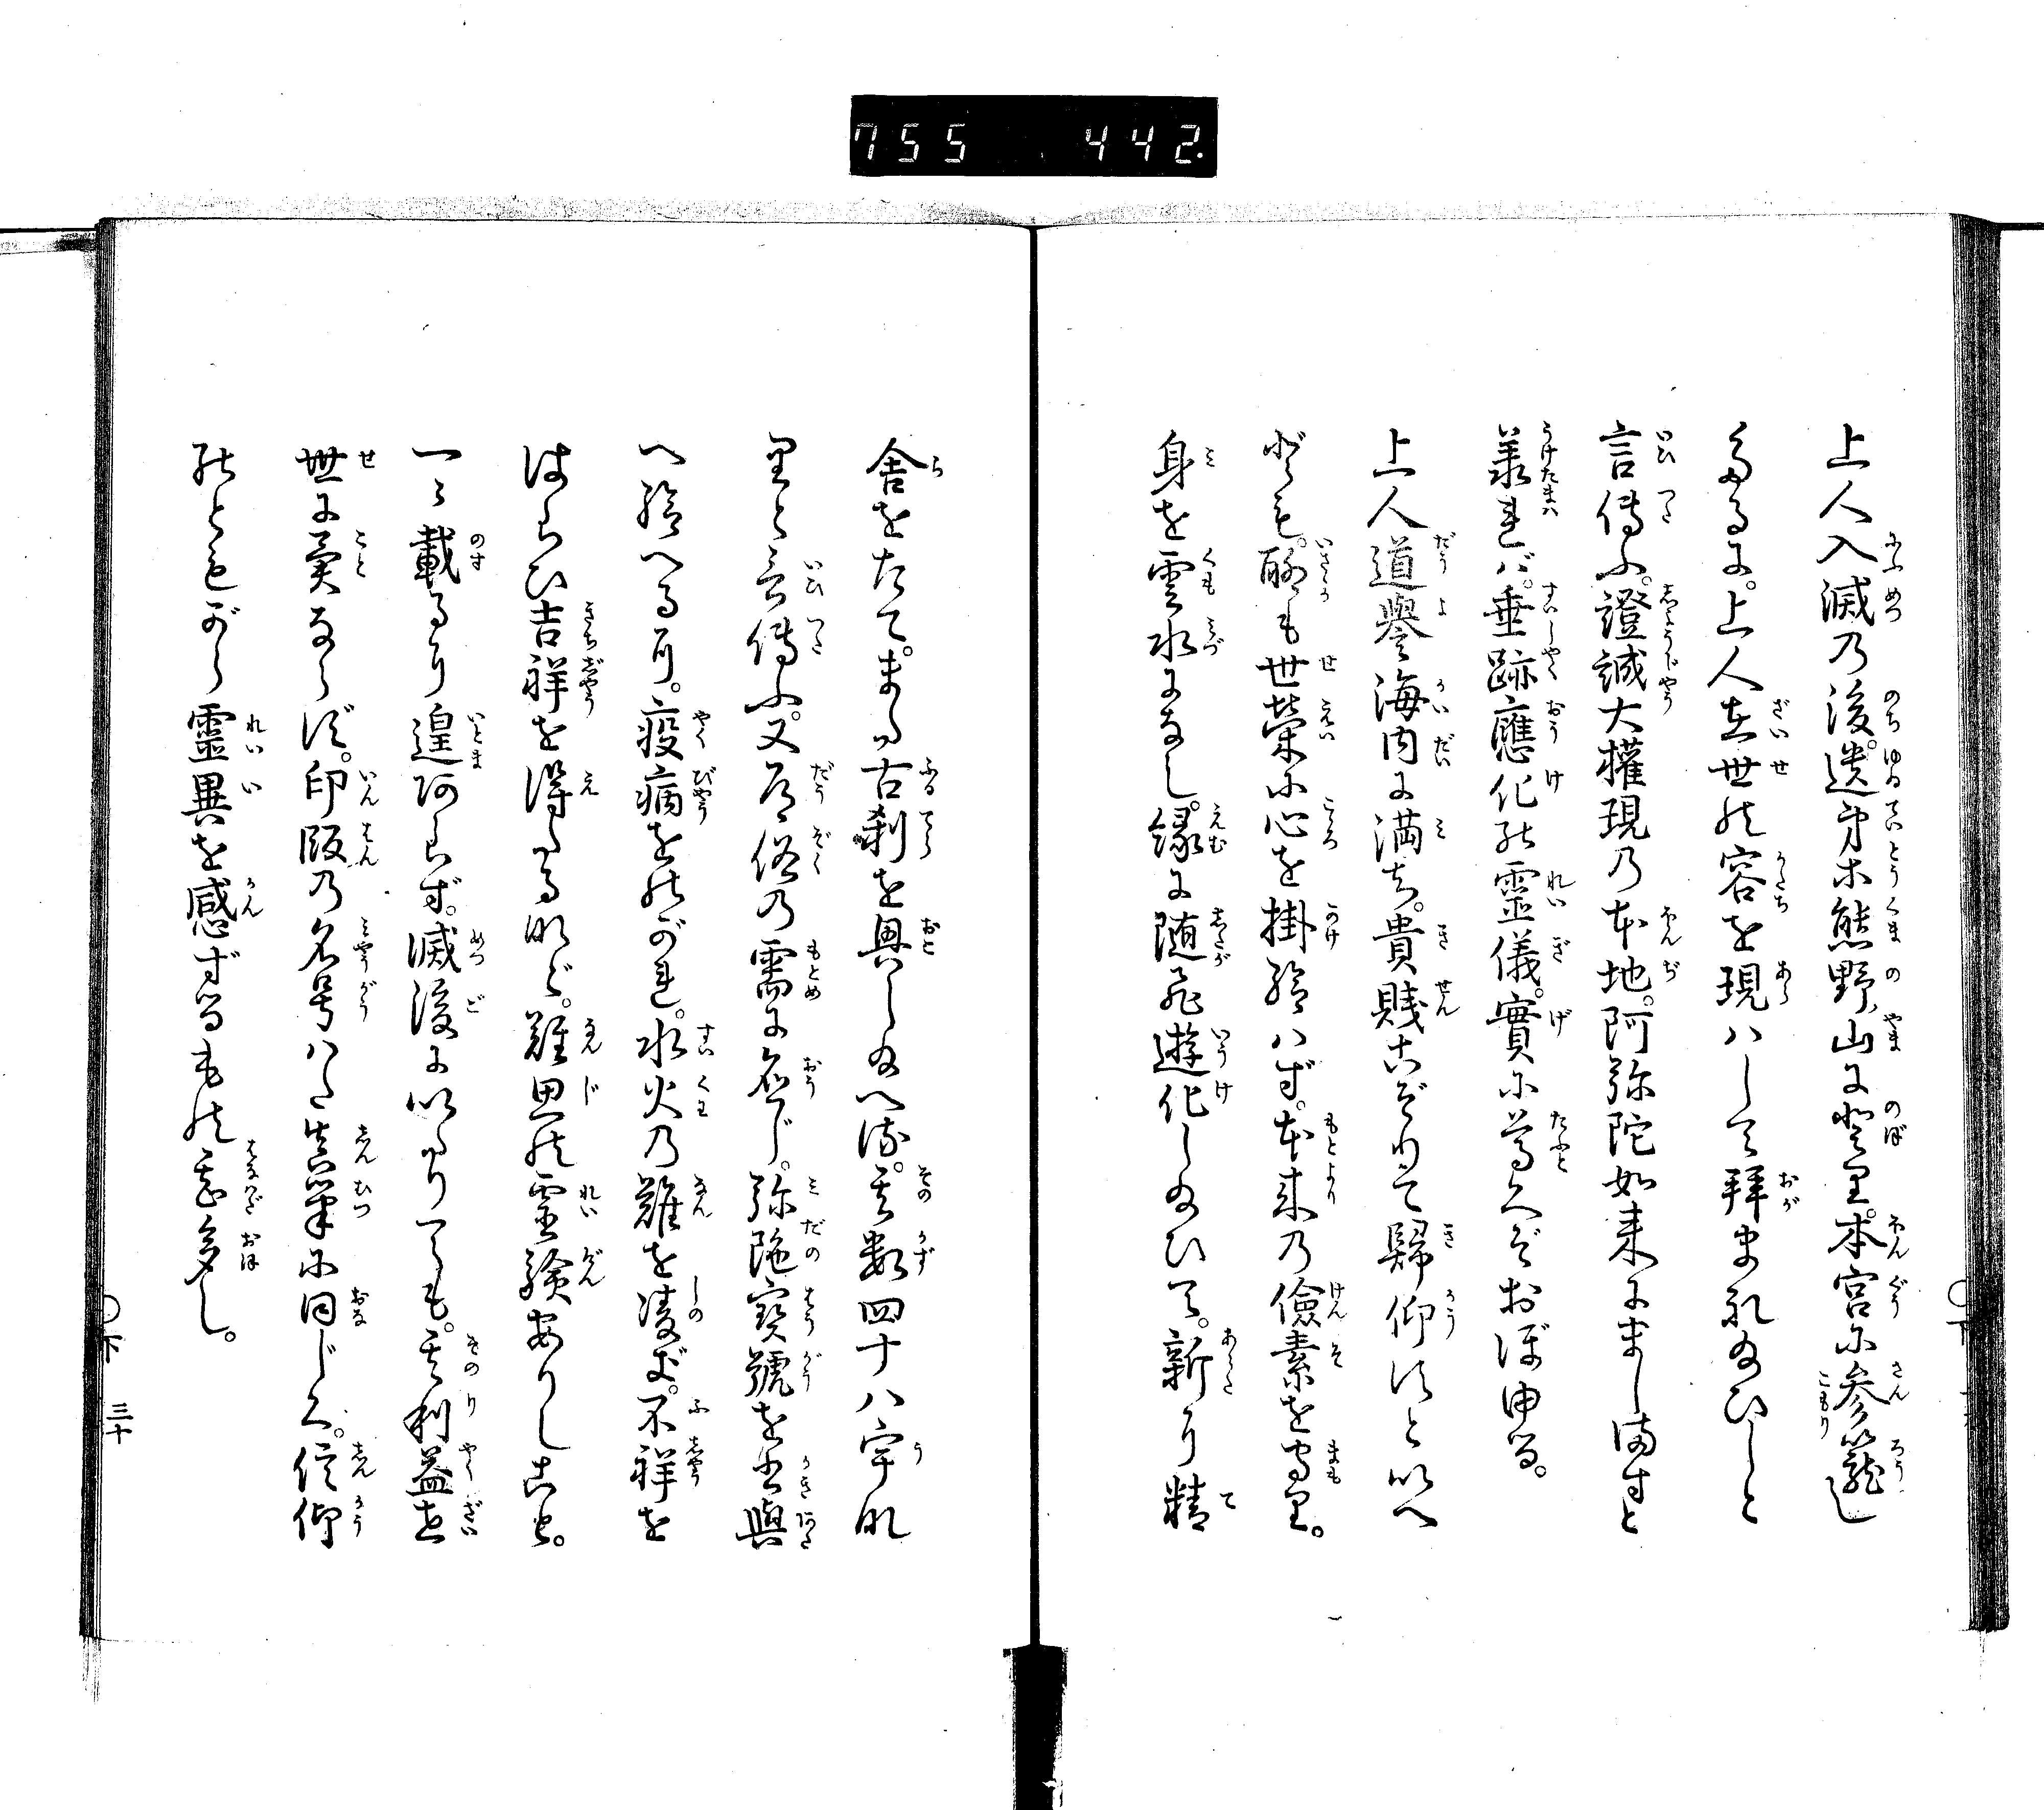 755 442
上人入滅乃後。遺弟等熊野山に登里。本宮に参籠し
たるに。上人在世の容を現ハして拝まれ給ひしと
言傳ふ。證誠大權現乃本地。阿弥陀如来にましますと
承れバ。垂跡應化の靈儀。實に尊くぞおぼ申る。
上人道譽海内に満ち。貴賤こぞりて歸仰すといへ
ども。聊も世榮に心を掛給ハず。本来乃儉素を守里。
身を雲水になし。縁に随飛遊化し給ひて。新に精
舎をたて。また古刹を興し給へ流。其数四十八宇な
里と言傳ふ。又道俗乃需に應じ。弥陀寶號を書與
へ給へるに。疫病をのがれ。水火乃難を凌ぎ。不祥を
はらひ吉祥を得たるなど。難思の靈驗安りしこと。
一々載るに遑阿らず。滅後にいたりても。其利益在
世に異ならず。印版乃名号ハた真筆に同じく。信仰
のともがら靈異を感ずるもの甚多し。
〇下 三十